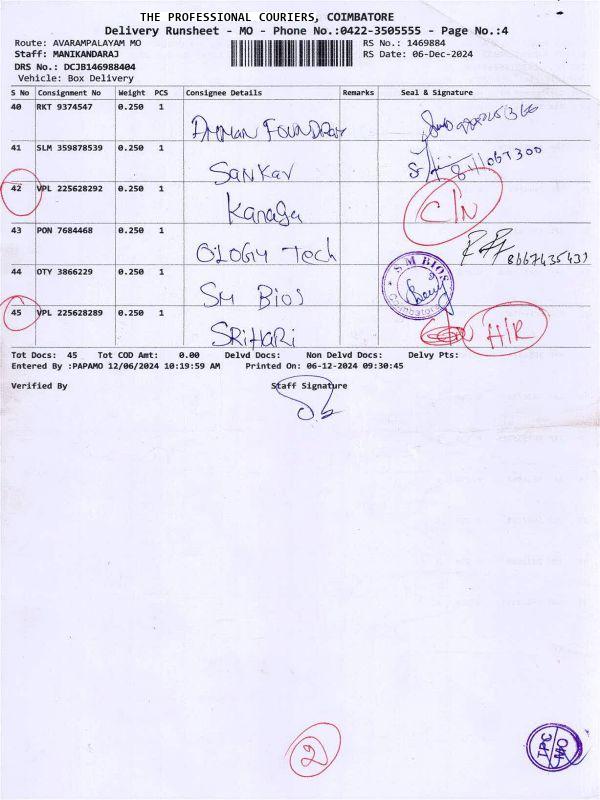 THE PROFESSIONAL COURIERS, COIMBATORE
Delivery Runsheet - MO - Phone No.:0422-3505555 - Page No.:4
Route: AVARAMPALAYAM MO RS No.: 1469884
Staff: MANIKANDARAJ RS Date: 06-Dec-2024
DRS No.: DCJB146988404
Vehicle: Box Delivery
S No Consignment No Weight PCS Consignee Details Remarks Seal & Signature
40 RKT 9374547 0.250 1
AMMAN FOUNDRY
41 SLM 359878539 0.250 1
Sankar
42 VPL 225628292 0.250 1
Kanaga C/N
43 PON 7684468 0.250 1
OLOGY Tech
44 OTY 3866229 0.250 1 S M BIOS
SM Bios Coimbatore
45 VPL 225628289 0.250 1
SRIHARI H/R
Tot Docs: 45 Tot COD Amt: 0.00 Delvd Docs: Non Delvd Docs: Delvy Pts:
Entered By :PAPAMO 12/06/2024 10:19:59 AM Printed On: 06-12-2024 09:30:45
Verified By Staff Signature
2
TPC
MO